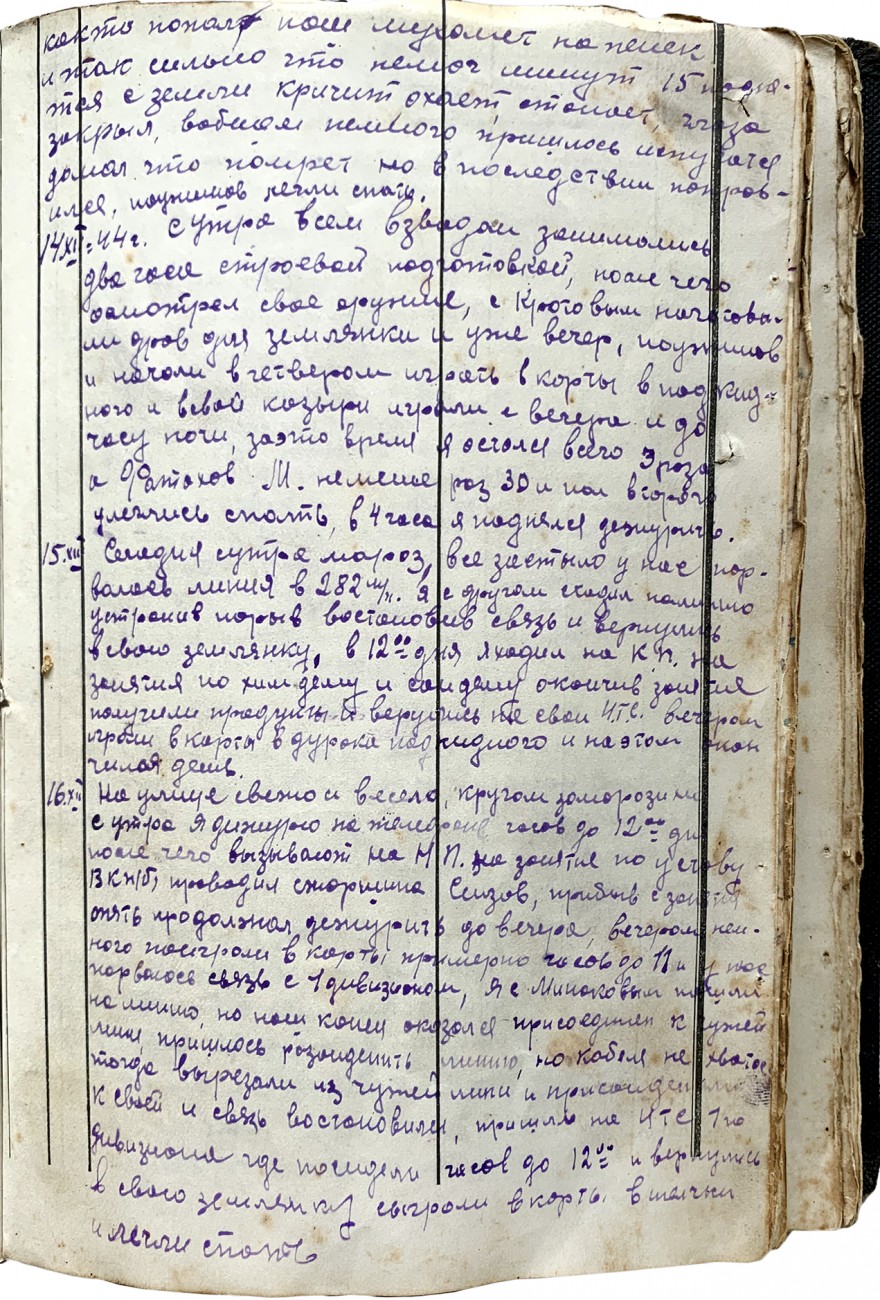 както попал наш мухомет на пенек
и так сильно что немог минут 15 подня-
тся с земли кричит охает, стонает, глаза
закрыл, вобщем немного пришлось испугатся
думал что помрет но в последствии поправ-
ился, поужинов легли спать.
14/XII-44г. С утра всем взводом занимались
два часа строевой подготовкой, после чего
осмотрел свое оружие, с Кротовым наготови-
ли дров для землянки и уже вечер, поужинов
и начали вчетвером играть в карты в подкид-
ного и в свой козыри играли с вечера и до
часу ночи, заэто время я остался всего 3 раза
а Фатахов М. немение раз 30 и пол второго
улеглись спать, в 4 часа я поднялся дежурить.
15.XII Сегодня сутра мороз, все застыло у нас пор-
валась линия в 282 м/п. Я с другом сходил налинию
устранив порыв востановив связь и вернулись
в свою землянку, в 12 00 дня я ходил на К.П. на
занятия по химделу и сандему окончив занятия
получили продукты и верулись на свои ЧТС. вечером
играли в карты в дурака подкидного и на этом окон
чился день.
16.XII На улице свежо и весело, кругом заморозини
с утра я дижурю на телефоне часов до 12 00 дн
после чего вызывают на Н.П. на занятие по уставу
ВКП/б, проводил старшина Сизов, прибыв с занятий
опять продолжал дежурить до вечера, вечером нем-
ного поиграли в карты примерно часов до 11 и у нас
порвалось связь с 1 дивизионом, я с Минаковым пошли
на линию, но наш конец оказался присоединен к чужей
лини, пришлось розоиденить линию, но кабеля не хватае
тогда вырезали из чужей лини и присоиденили
к своей и связь востановили, пришли на ЧТС 1го
дивизиона где посидели часов до 12 00 и вернулись
в свою землянку сыграли в карты в
и легли спать